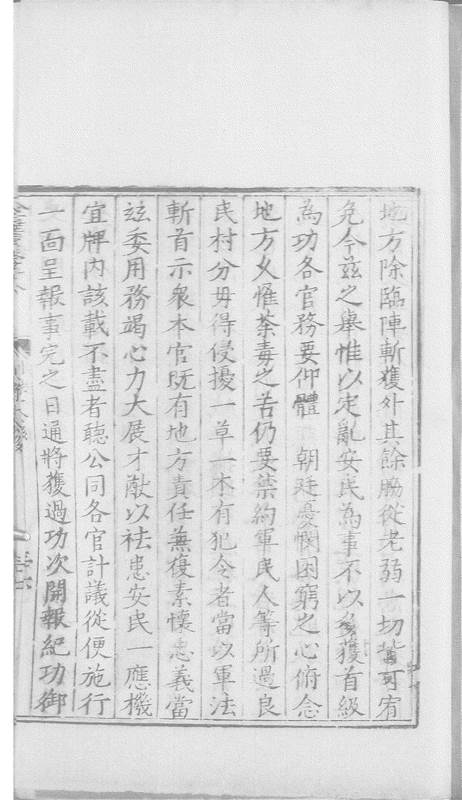 地方除臨陣斬獲外其餘脇從老弱一切皆可宥
免今兹之舉惟以定亂安民為事不以多獲首級
為功各官務要仰體 朝廷憂憫困窮之心俯念
地方久惟荼毒之苦仍要禁約軍民人等所過良
民村分毋得侵擾一草一木有犯令者當以軍法
斬首示衆本官既有地方責任兼復素懷忠義當
玆委用務竭心力大展才猷以祛患安民一應機
宜牌内該載不盡者聽公同各官計議從便施行
一面呈報事完之日通將獲過功次開報紀功御